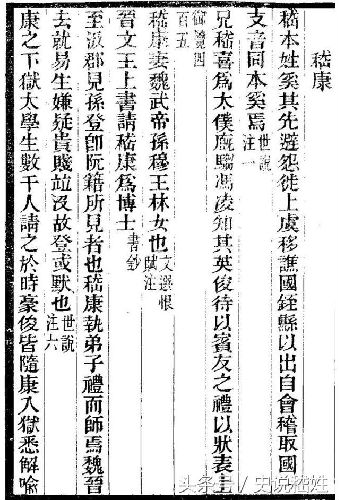 嵇康
嵇本姓奚其先避怨徙上虞移譙國銍縣以出自會稽取國
支音同本奚焉世說注一
兄嵇喜爲太僕厩騶馮凌知其英俊待以賓友之禮以狀表上
御覽四百五
嵇康妻魏武帝孫穆王林女也文選恨賦注
晉文王上書請嵇康爲博士書鈔
至汲郡見孫登卽阮籍所見者也嵇康執弟子禮而師焉魏晉
去就易生嫌疑貴賤竝沒故登或默也世說注六
康之下獄太學生數千人請之於時豪俊皆隨康入獄悉解喻
头条号 / 史说嵇姓